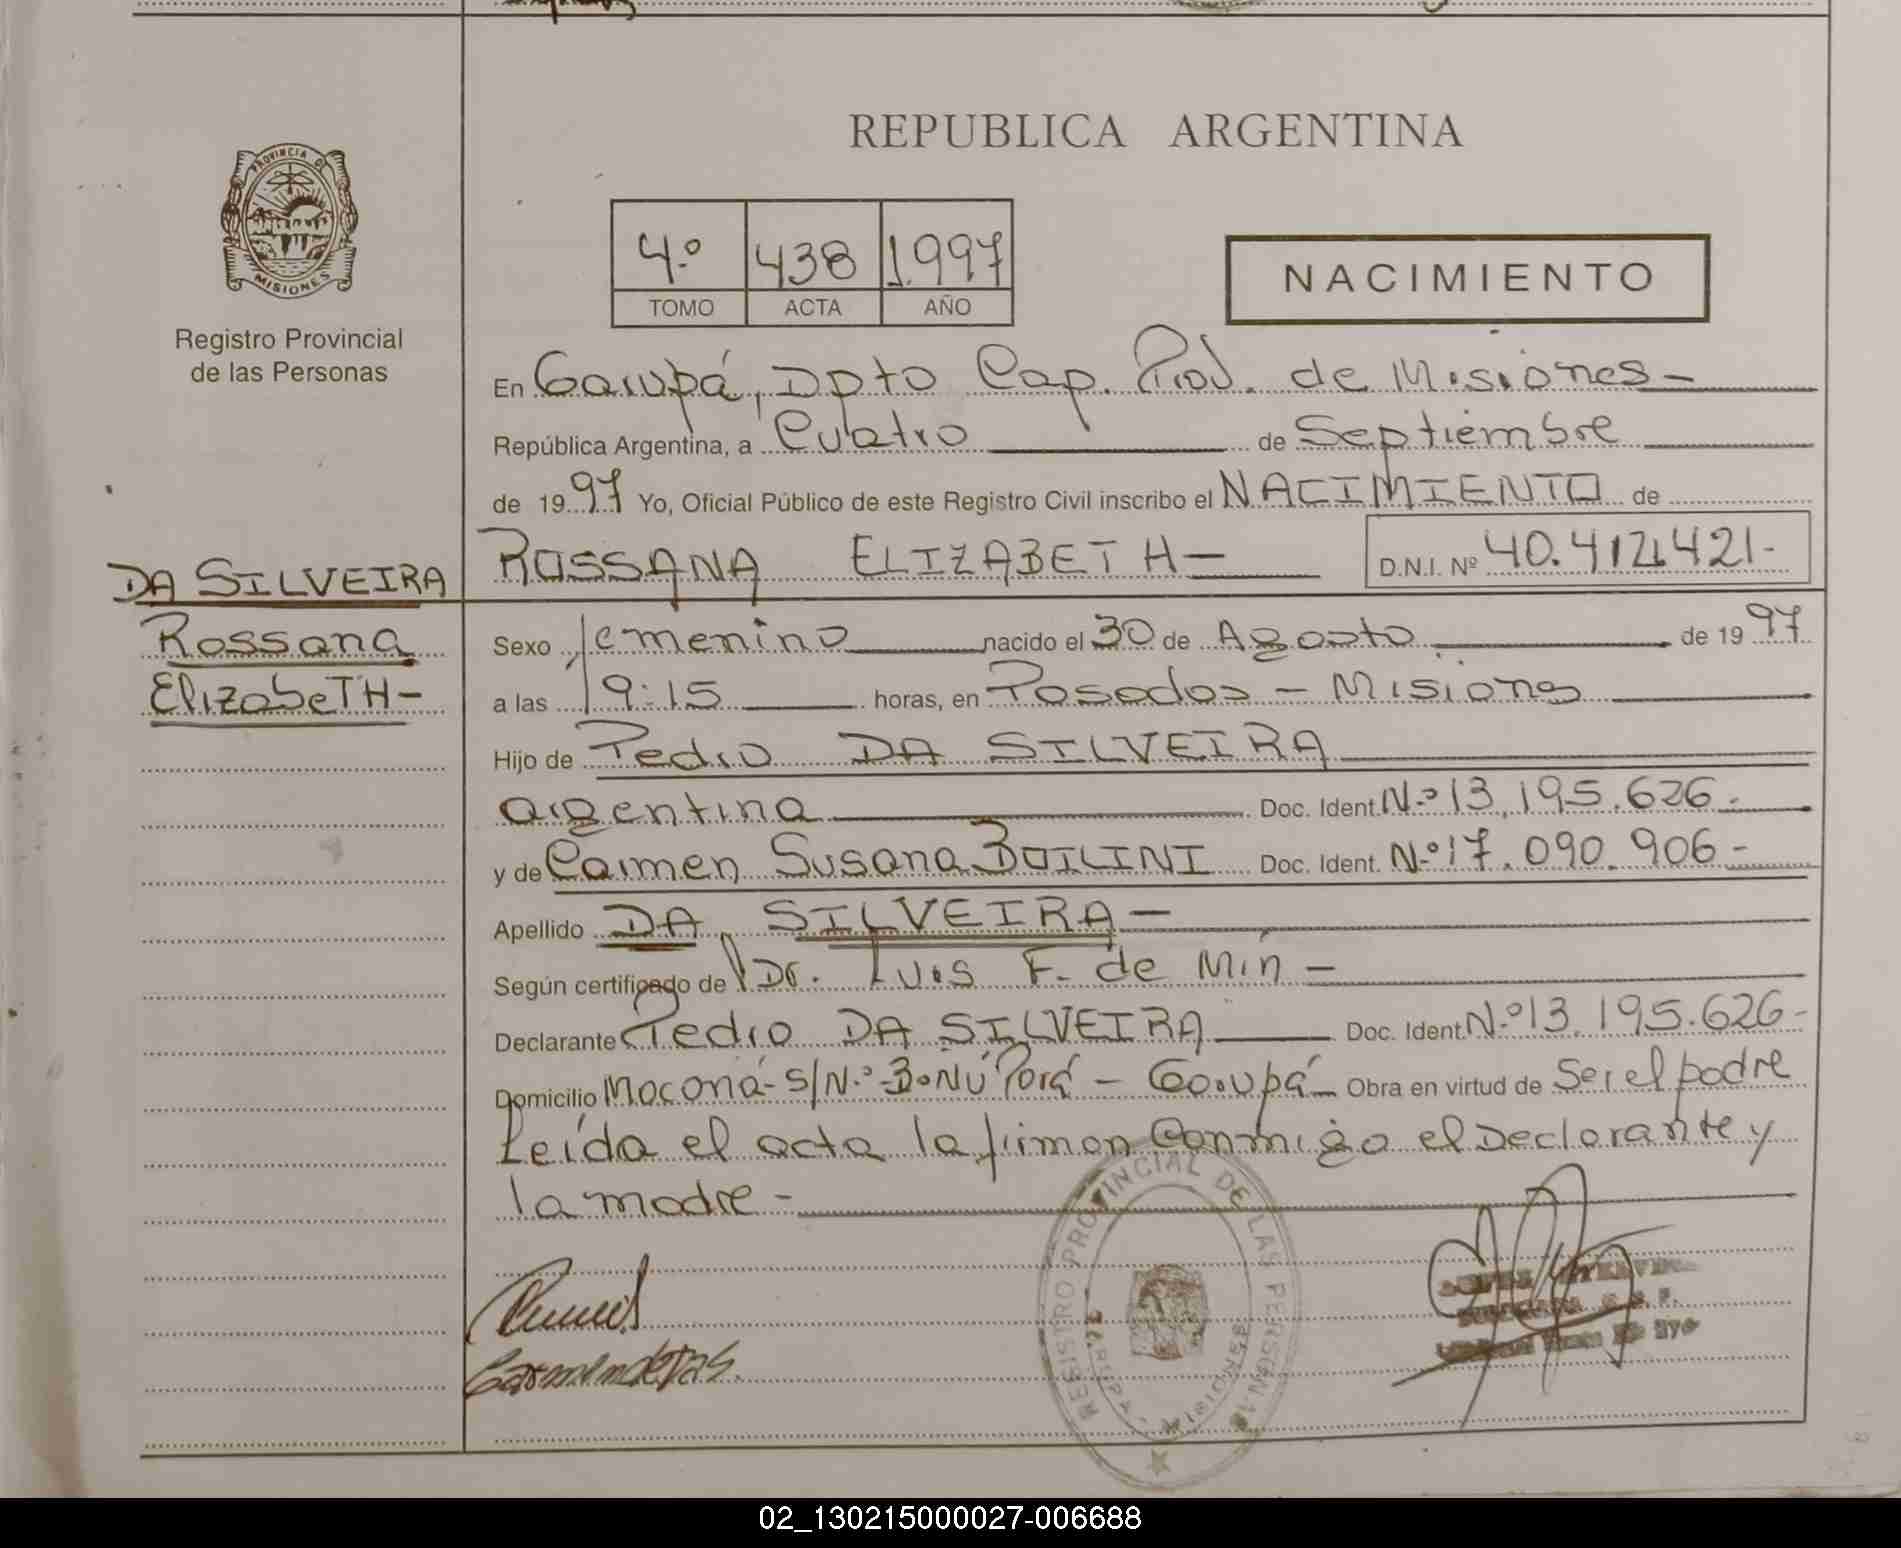 PROVINCIA DE
MISIONES
Registro Provincial
de las Personas
DA SILVEIRA
Rossana
ElizabeTH-
REPUBLICA ARGENTINA
4º 438 1.997
TOMO ACTA AÑO
NACIMIENTO
En Garupá, Dpto Cap. Prov. de Misiones-
República Argentina, a Cuatro de Septiembre
de 1997 Yo, Oficial Público de este Registro Civil inscribo el NACIMIENTO de
ROSSANA ELIZABETH- D.N.I. Nº 40.412.421-
Sexo femenino nacido el 30 de Agosto de 1997
a las 19:15 horas, en Posadas - Misiones
Hijo de Pedro DA SILVEIRA
argentina Doc. Ident. N.º 13.195.626.-
y de Carmen Susana BOILINI Doc. Ident. N.º 17.090.906-
Apellido DA SILVEIRA-
Según certificado de Dr. Luis F. de Min-
Declarante Pedro DA SILVEIRA Doc. Ident. N.º 13.195.626-
Domicilio Moconá- S/N.º- Bº Ñú Porá - Garupá- Obra en virtud de Ser el padre
Leída el acta la firman Conmigo el Declarante y
la madre-
REGISTRO PROVINCIAL DE LAS PERSONAS
GARUPA
MISIONES
02_130215000027-006688